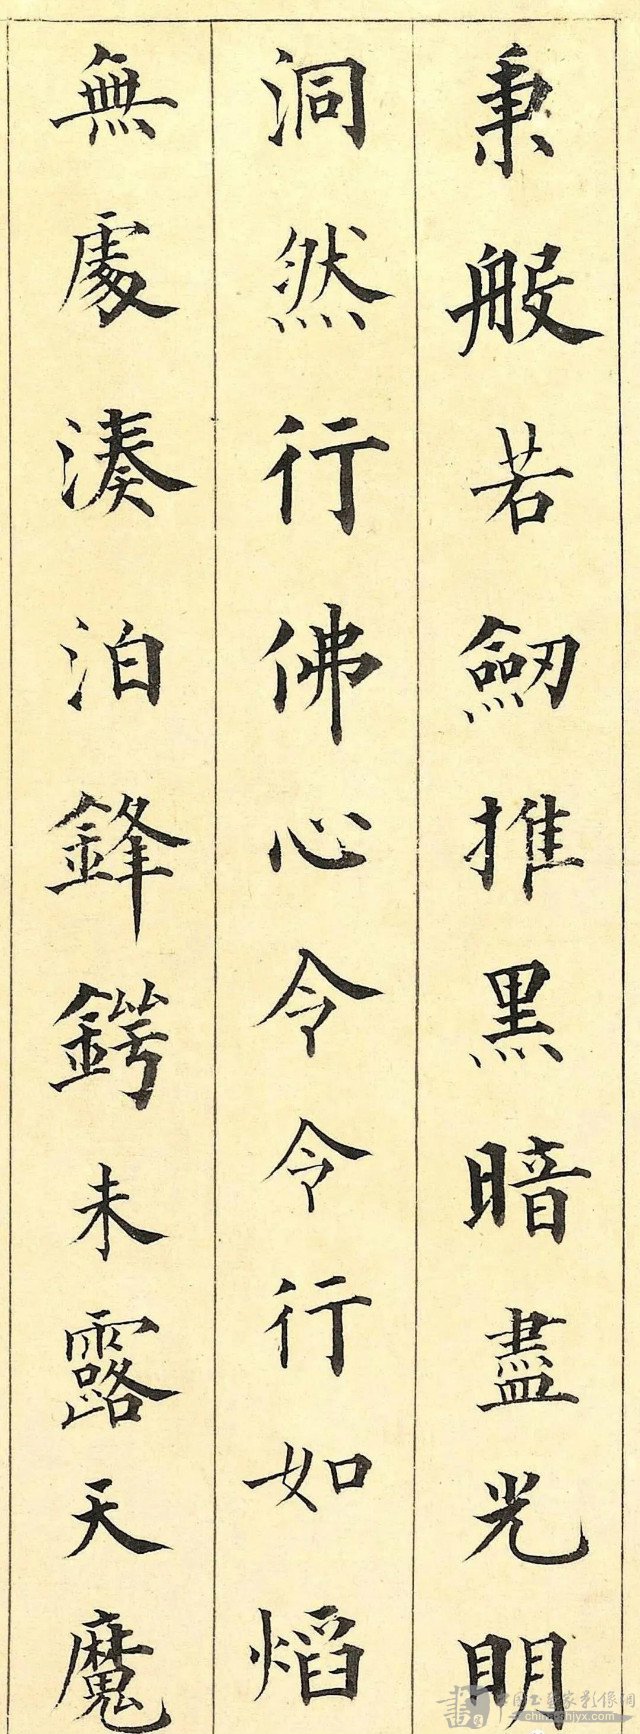 秉般若劒推黑暗盡光明
洞然行佛心令令行如熖
無處湊泊鋒鍔未露天魔
中国工艺家影像网
china-shjyx.com